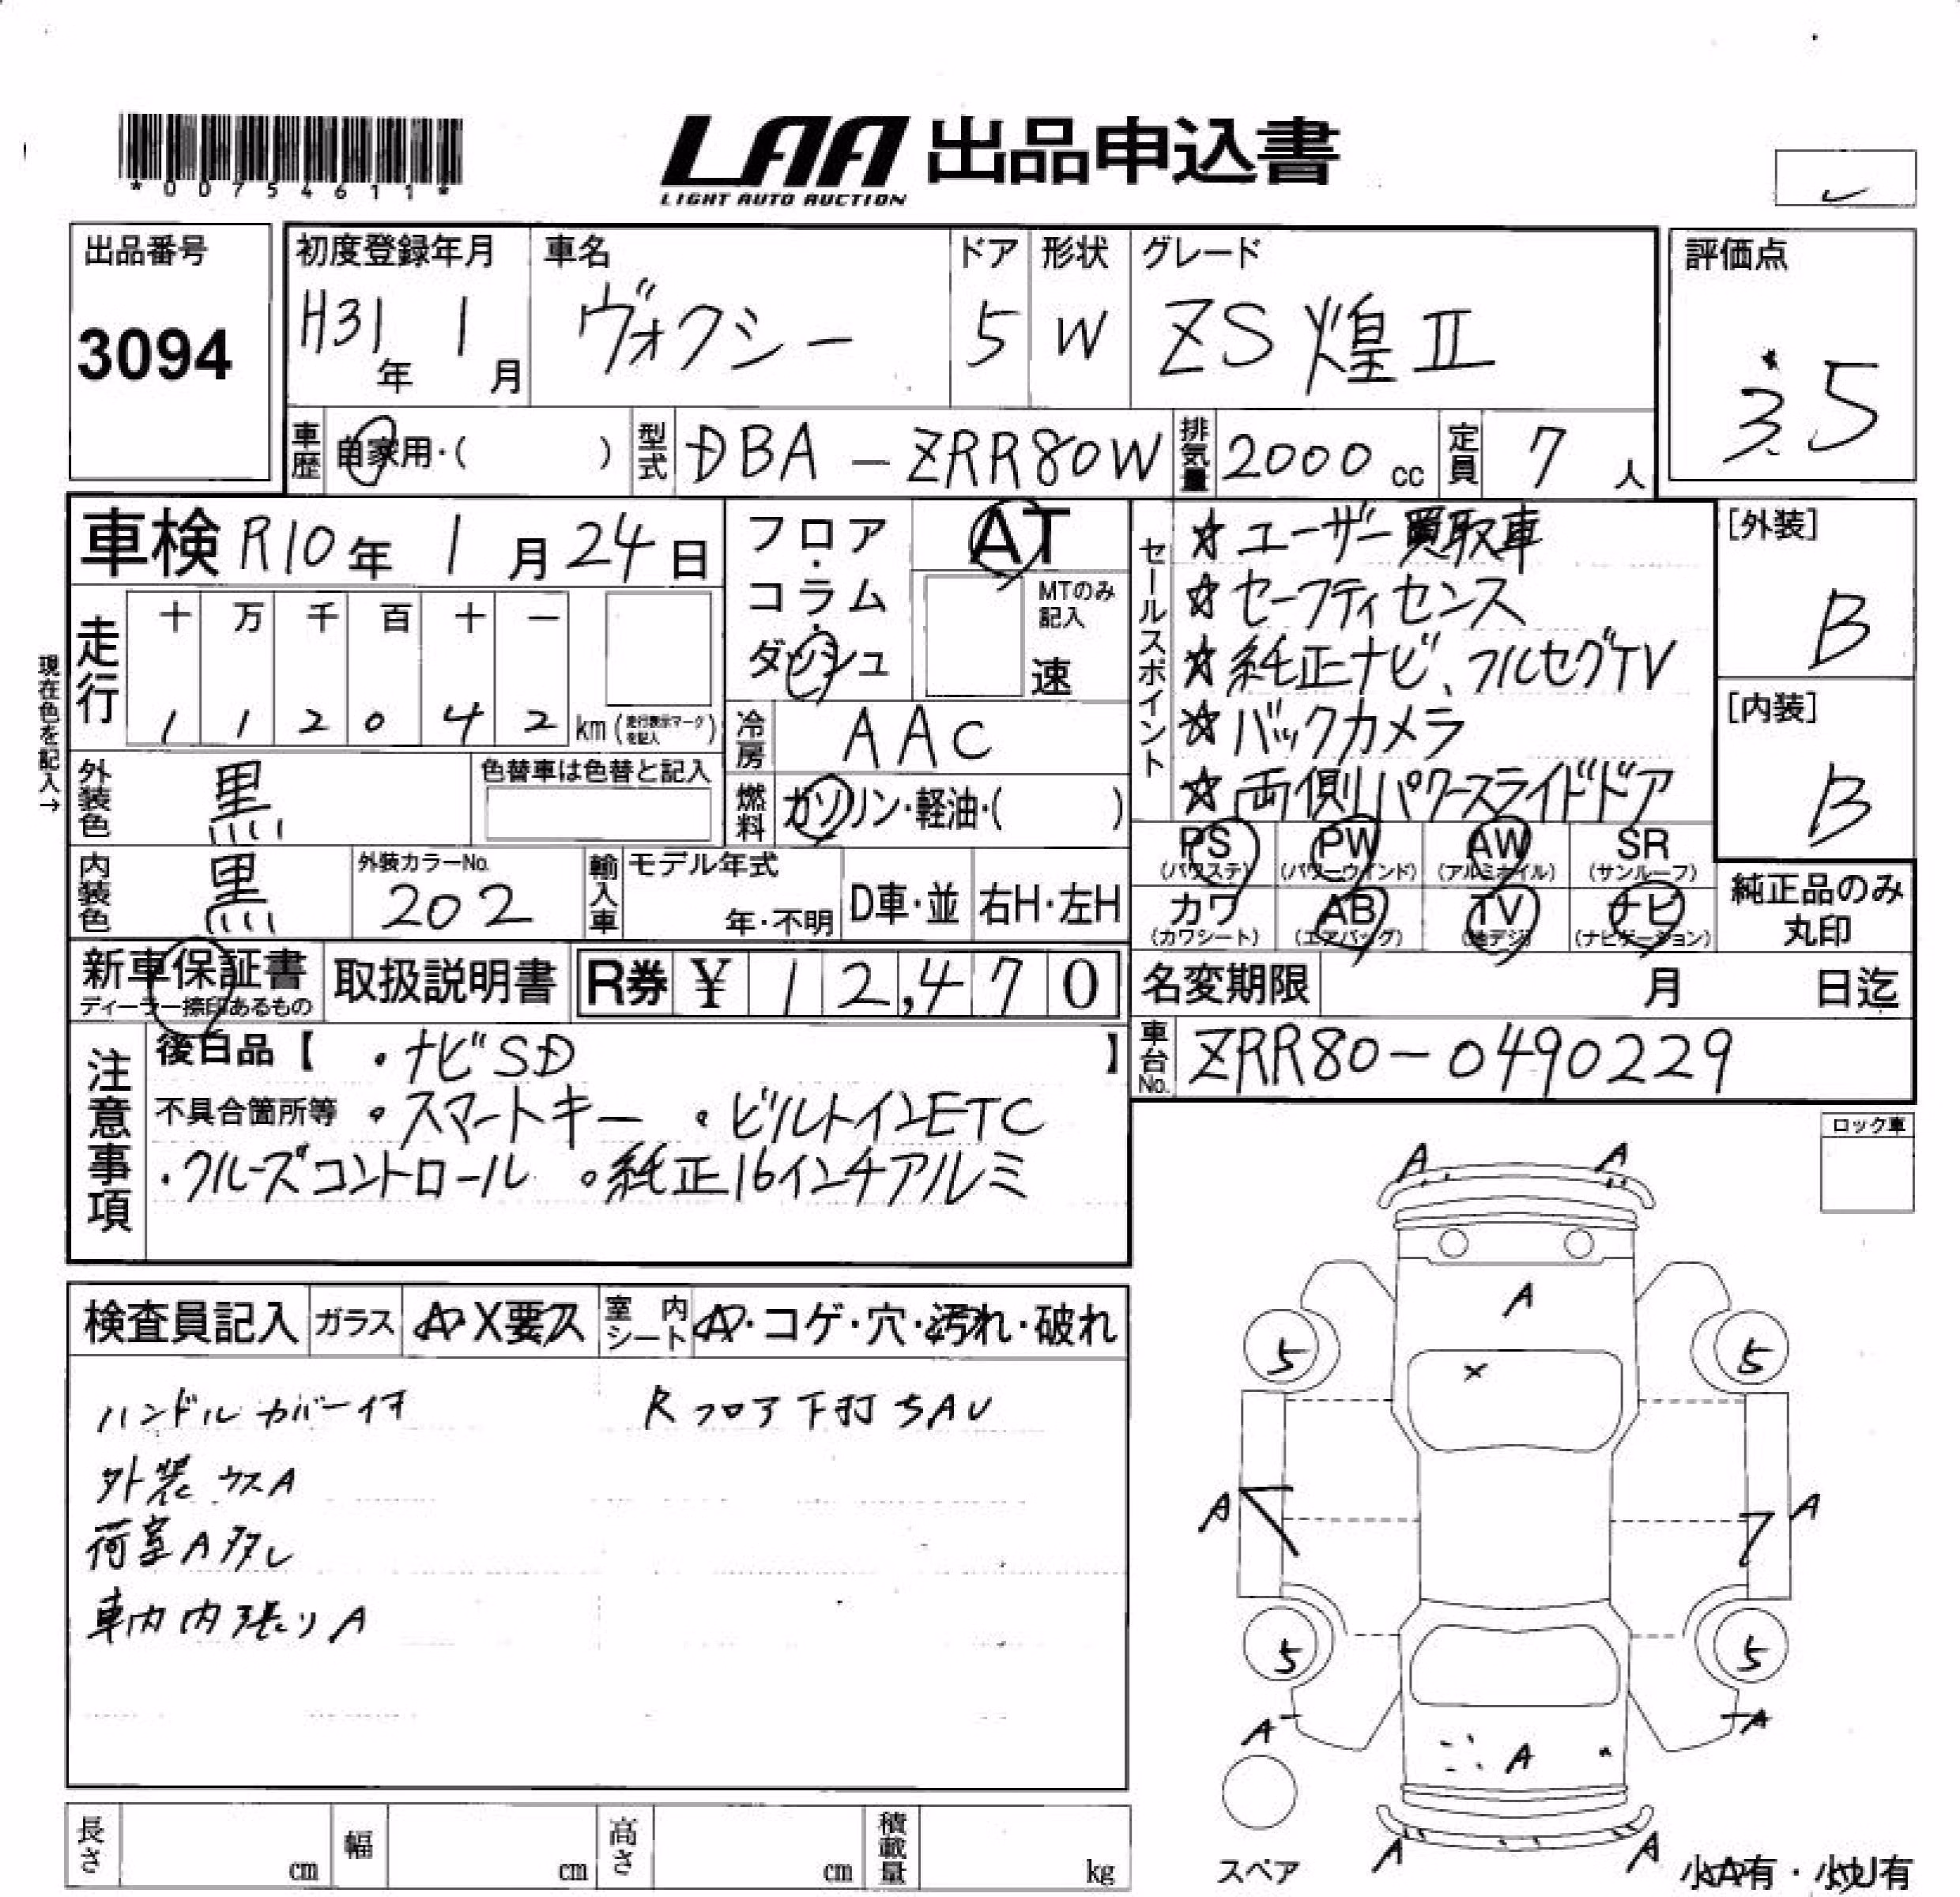 *00754611*
LAA 出品申込書
LIGHT AUTO AUCTION
出品番号
3094
初度登録年月
H31年 1月
車名
ヴォクシー
ドア
5
形状
W
グレード
ZS 煌Ⅱ
評価点
3.5
車歴 自家用・( )
型式 DBA-ZRR80W
排気量 2000 cc
定員 7 人
車検 R10年 1月 24日
フロア・コラム・ダッシュ
AT
MTのみ記入
速
セールスポイント
☆ユーザー買取車
☆セーフティセンス
☆純正ナビ、フルセグTV
☆バックカメラ
☆両側パワースライドドア
[外装]
B
[内装]
B
現在色を記入→
走行
十 万 千 百 十 一
1 1 2 0 4 2 km (走行表示マークを記入)
冷房 AAC
外装色 黒
色替車は色替と記入
燃料 ガソリン・軽油・( )
内装色 黒
外装カラーNo.
202
輸入車 モデル年式
年・不明
D車・並
右H・左H
PS (パワステ)
PW (パワーウインド)
AW (アルミホイル)
SR (サンルーフ)
カワ (カワシート)
AB (エアバッグ)
TV (地デジ)
ナビ (ナビゲーション)
純正品のみ
丸印
新車保証書
ディーラー捺印あるもの
取扱説明書
R券 ¥ 12,470
名変期限 月 日迄
車台No. ZRR80-0490229
注意事項
後日品【 ・ナビSD 】
不具合箇所等 ・スマートキー ・ビルトインETC
・クルーズコントロール ・純正16インチアルミ
ロック車
検査員記入
ガラス A・X要ス
室内シート A・コゲ・穴・汚れ・破れ
ハンドルカバー付
Rフロア下打ちAU
外装ウスA
荷室A多し
車内内張りA
A A
A
5 X 5
A A
5 5
A A
A
A A
スペア
小A有・小U有
長さ cm
幅 cm
高さ cm
積載量 kg